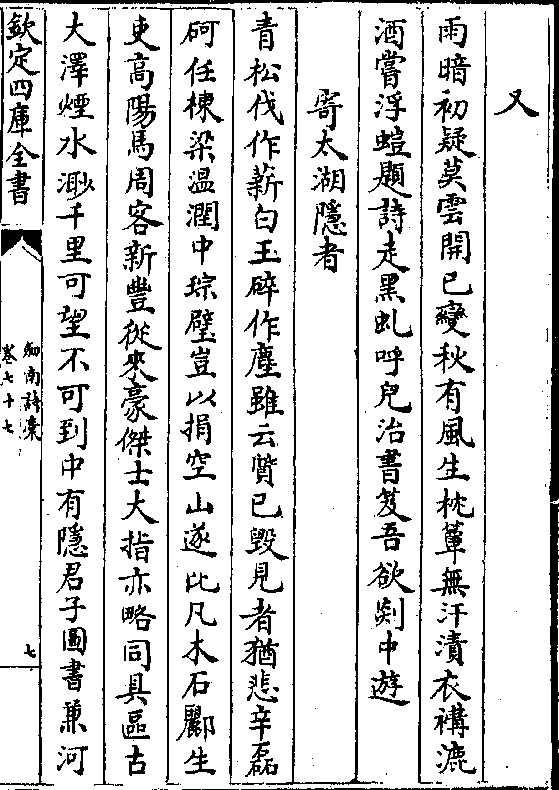 又
雨暗初疑莫雲開已變秋有風生枕簟無汗漬衣褠漉
酒嘗浮螘題詩走黑虬呼兒治書笈吾欲剡中遊
寄太湖隱者
青松伐作薪白玉碎作塵雖云質已毀見者猶悲辛磊
砢任棟梁温潤中琮璧豈以捐空山遂比凡木石酈生
吏高陽馬周客新豐從來豪傑士大指亦略同具區古
大澤煙水渺千里可望不可到中有隱君子圖書兼河
欽定四庫全書
劒南詩藁
卷七十七
七